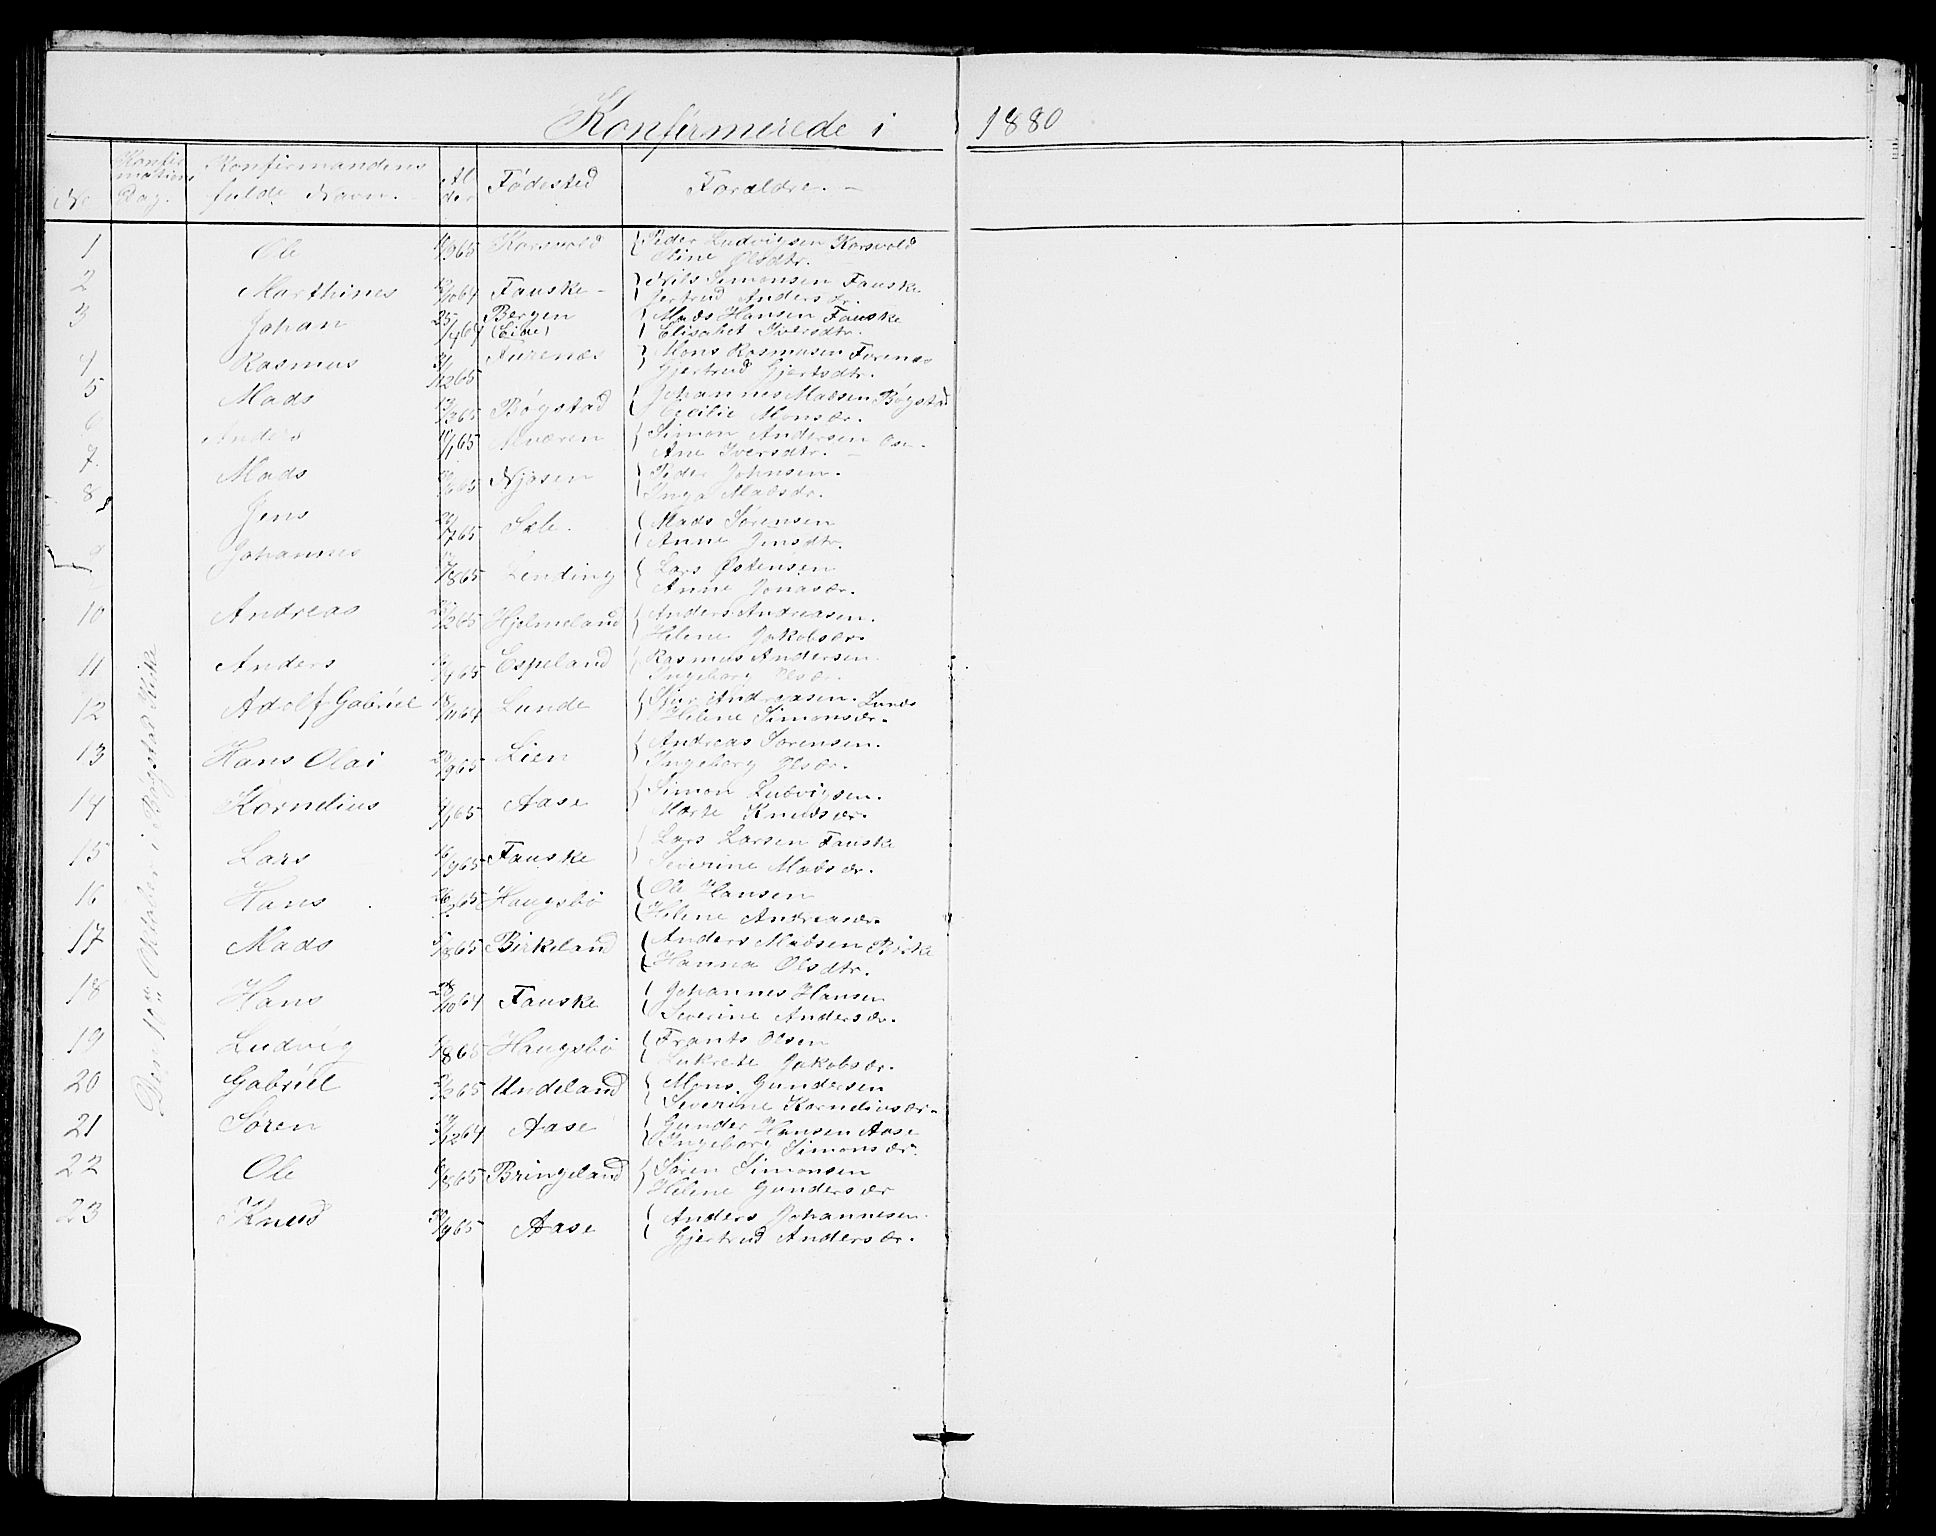 Konfirmerede i 1880
No Konfirmations Dag. Konfirmandens fulde Navn. Alder Fødested Forældre.
Den 10de Oktober i Bøgstad Kirke
1 Ole /365 Korsvold Peder Ludvigsen Korsvold
Stine Olsdtr.
2 Marthines /1064 Fauske Nils Simonsen Fauske
Gjertrud Andersdr.
3 Johan 25/464 Bergen (Eide) Mads Hansen Fauske
Elisabet Iversdtr.
4 Rasmus /1265 Furenæs Mons Rasmusen Furenæs
Gjertrud Gjertsdtr.
5 Mads /365 Bøgstad Johannes Madsen Bøgstad
Cecilie Monsdr.
6 Anders /165 Kværen Simon Andersen
Ane Iversdtr.
7 Mads /665 Njøsen Peder Johnsen.
Inga Madsdr.
8 Jens /765 Sæle. Mads Sørensen
Anne Jensdtr.
9 Johannes /865 Lending Lars Østensen
Anne Jonasdr.
10 Andreas /265 Hjelmeland Anders Andreasen.
Helene Jakobsdr.
11 Anders /165 Espeland Rasmus Andersen.
Ingeborg Olsdr.
12 Adolf Gabriel 18/1164 Lunde Andreasen. Lunde
Helene Simonsdr.
13 Hans Olai /965 Lien Andreas Sørensen.
Ingeborg Olsdr.
14 Kornelius /165 Aase Simon Ludvigsen.
Marte Knudsdr.
15 Lars /965 Fauske Lars Larsen Fauske
Severine Madsdr.
16 Hans 65 Haugsbø Ole Hansen
Helene Andreasdr.
17 Mads /865 Birkeland Anders Madsen Birke
Hanna Olsdtr.
18 Hans /1064 Fauske Johannes Hansen
Severine Andersdr.
19 Ludvig /865 Haugsbø Frants Olsen
Lukrete Jakobsdr.
20 Gabriel /265 Undeland Mons Gundersen
Severine Korneliusdr.
21 Søren /1264 Aase Gunder Hansen Aase
Ingeborg Simonsdr.
22 Ole /865 Bringeland Søren Simonsen
Helene Gundersdr
23 Knud /965 Aase Anders Johannesen.
Gjertrud Andersdr.